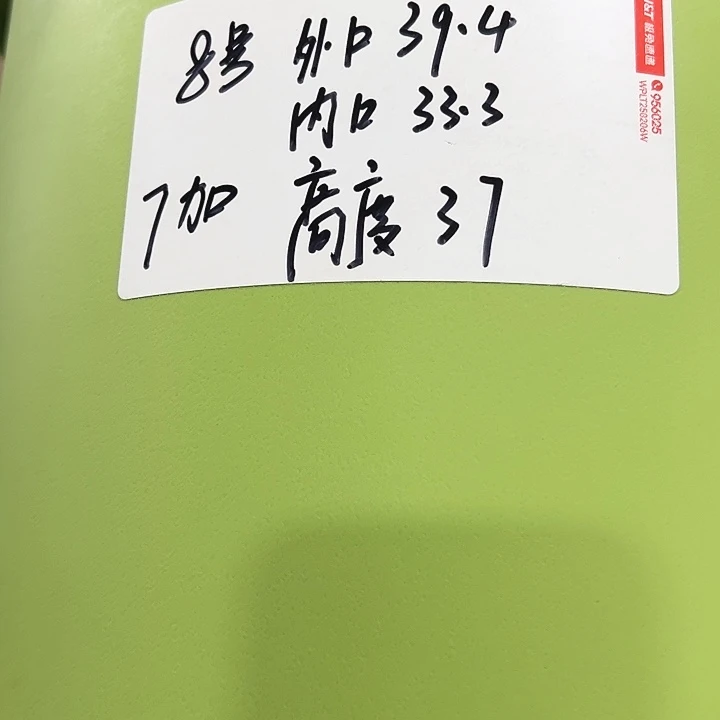 8号 外口 39.4
内口 33.3
7加 高度 37
J&T 极兔速递
956025
WPLT250206W